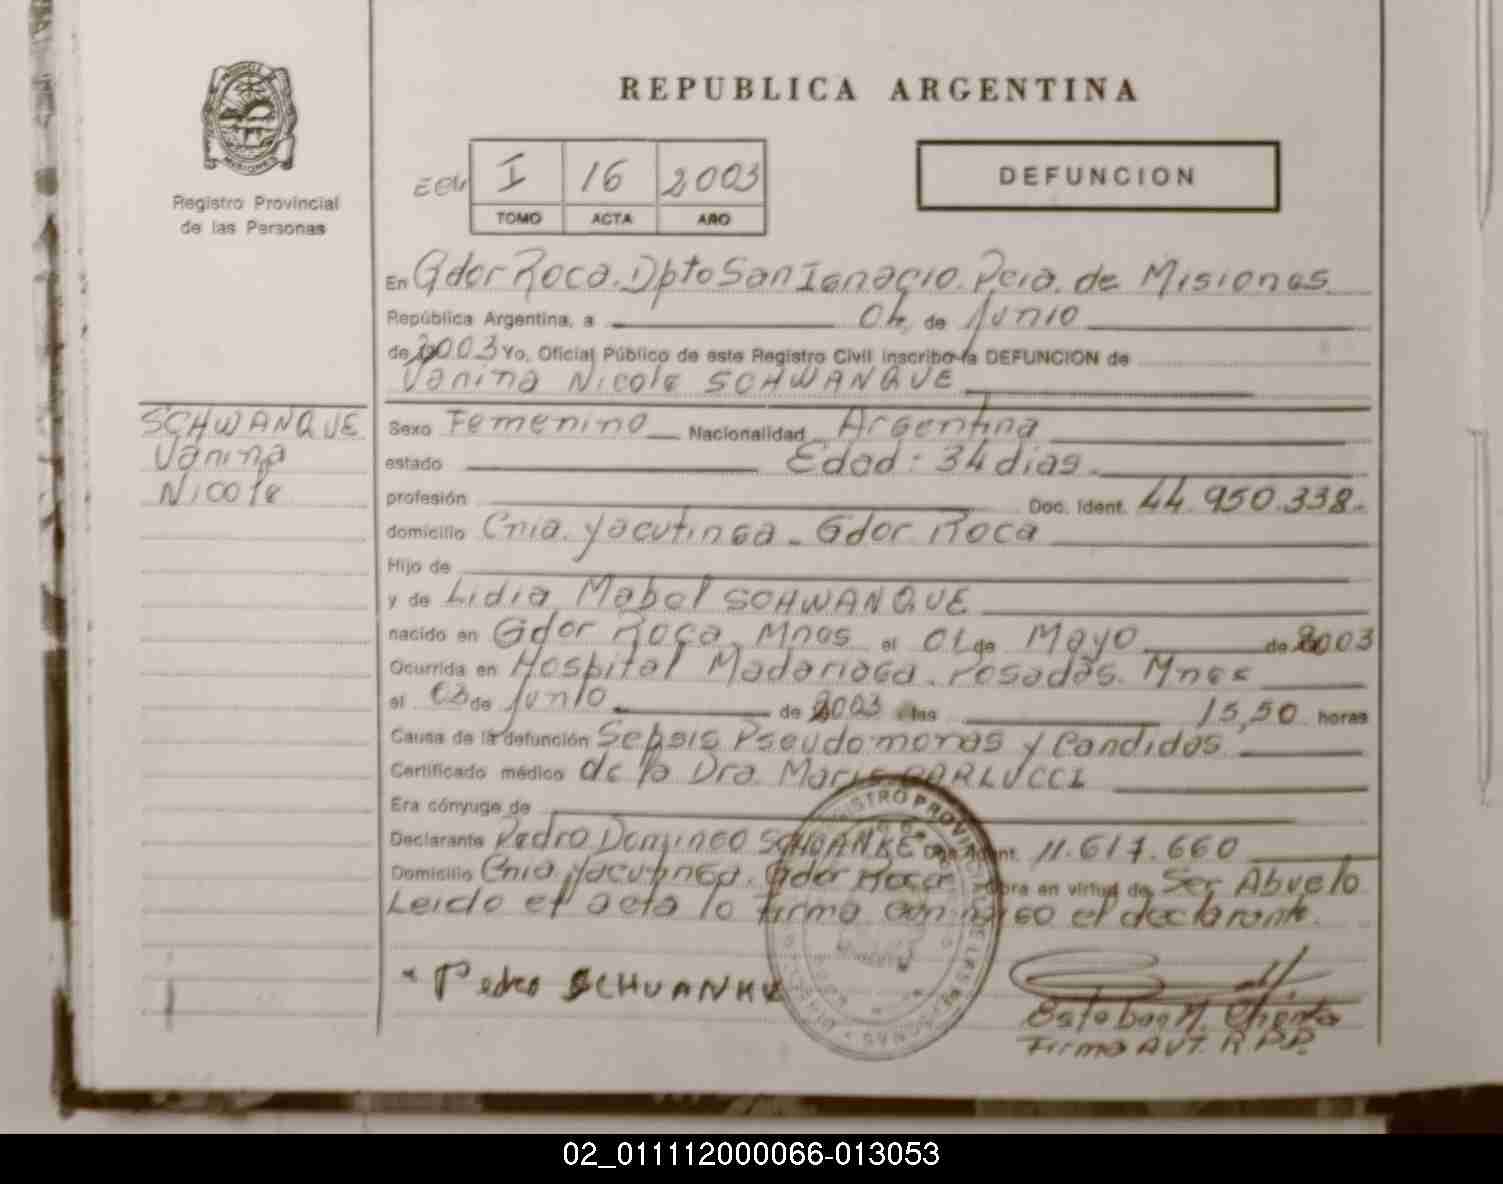 REPUBLICA ARGENTINA
PROVINCIA DE MISIONES
Registro Provincial
de las Personas
I 16 2003
TOMO ACTA AÑO
DEFUNCION
En Gdor Roca. Dpto San Ignacio. Pcia. de Misiones
República Argentina, a 04 de Junio
de 2003 Yo, Oficial Público de este Registro Civil inscribo la DEFUNCION de
Vanina Nicole SCHWANQUE
SCHWANQUE
Vanina
Nicole
Sexo Femenino Nacionalidad Argentina
estado Edad: 34 dias.
profesión Doc. Ident. 44.950.338.-
domicilio Cnia. Yacutinga - Gdor Roca
Hijo de
y de Lidia Mabel SCHWANQUE
nacido en Gdor Roca, Mnes el 01 de Mayo de 2003
Ocurrida en Hospital Madariaga. Posadas. Mnes
el 03 de Junio de 2003 a las 15,50 horas
Causa de la defunción Sepsis Pseudomonas y Candidas
Certificado médico de la Dra. Maris CARLUCCI
Era cónyuge de
Declarante Pedro Domingo SCHUANKE Doc. Ident. 11.617.660
Domicilio Cnia. Yacutinga. Gdor Roca Obra en virtud de Ser Abuelo
Leido el acta lo firma conmigo el declarante.
Pedro SCHUANKE
Esteban M.
Firma AUT. R.P.P.
REGISTRO PROVINCIAL DE LAS PERSONAS
02_011112000066-013053